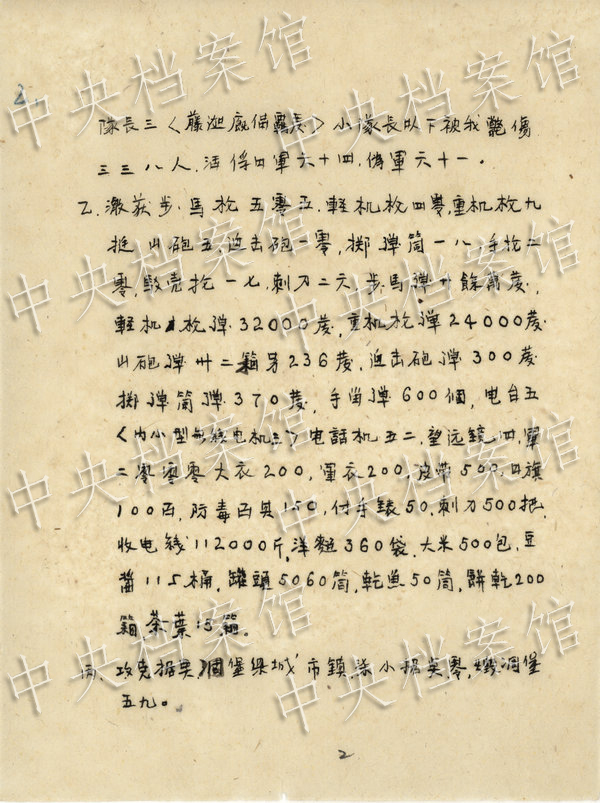 2.
隊長三〈藤 〉小隊長以下被我斃傷
三三八人.活俘日軍六十四,偽軍六十一.
乙.激获步.馬枪五零五.軽机枚四零,重机枚九
挺山砲五,迫击砲一零,掷弹筒一八,手抢二
零,駁壳抢一七,刺刀二六,步馬弹廿餘萬發,
軽机枚弹32000發,重机抢弹24000發
山砲弹卅二箱另236發,迫击砲弹300發
掷弹筒弹370發,手留弹600個,电台五
〈内小型无线电机三〉电話机五二,望远鏡四,軍
大衣200,軍衣200,皮帶500,日旗
100面,防毒面具150,付手錶50,刺刀500把,
收电綫112000斤,洋麵360袋.大米500包,豆
醬115桶,罐頭5060筒,乾魚50筒,餅乾200
箱茶葉15箱。
丙、攻克据 堡 城市鎮 小据 零, 堡
五九。
2
中央档案馆
中央档案馆
中央档案馆
中央档案馆
中央档案馆
中央档案馆
中央档案馆
中央档案馆